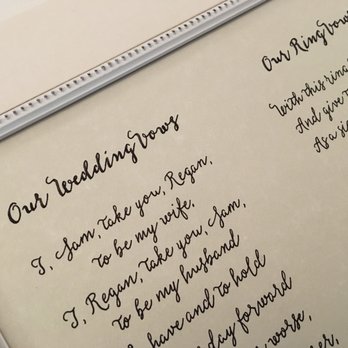 Our Wedding Vows
I, Sam, take you, Regan,
to be my wife,
I, Regan, take you, Sam,
to be my husband
have and to hold
day forward
worse,
Our Ring Vows
With this ring
And give
As a